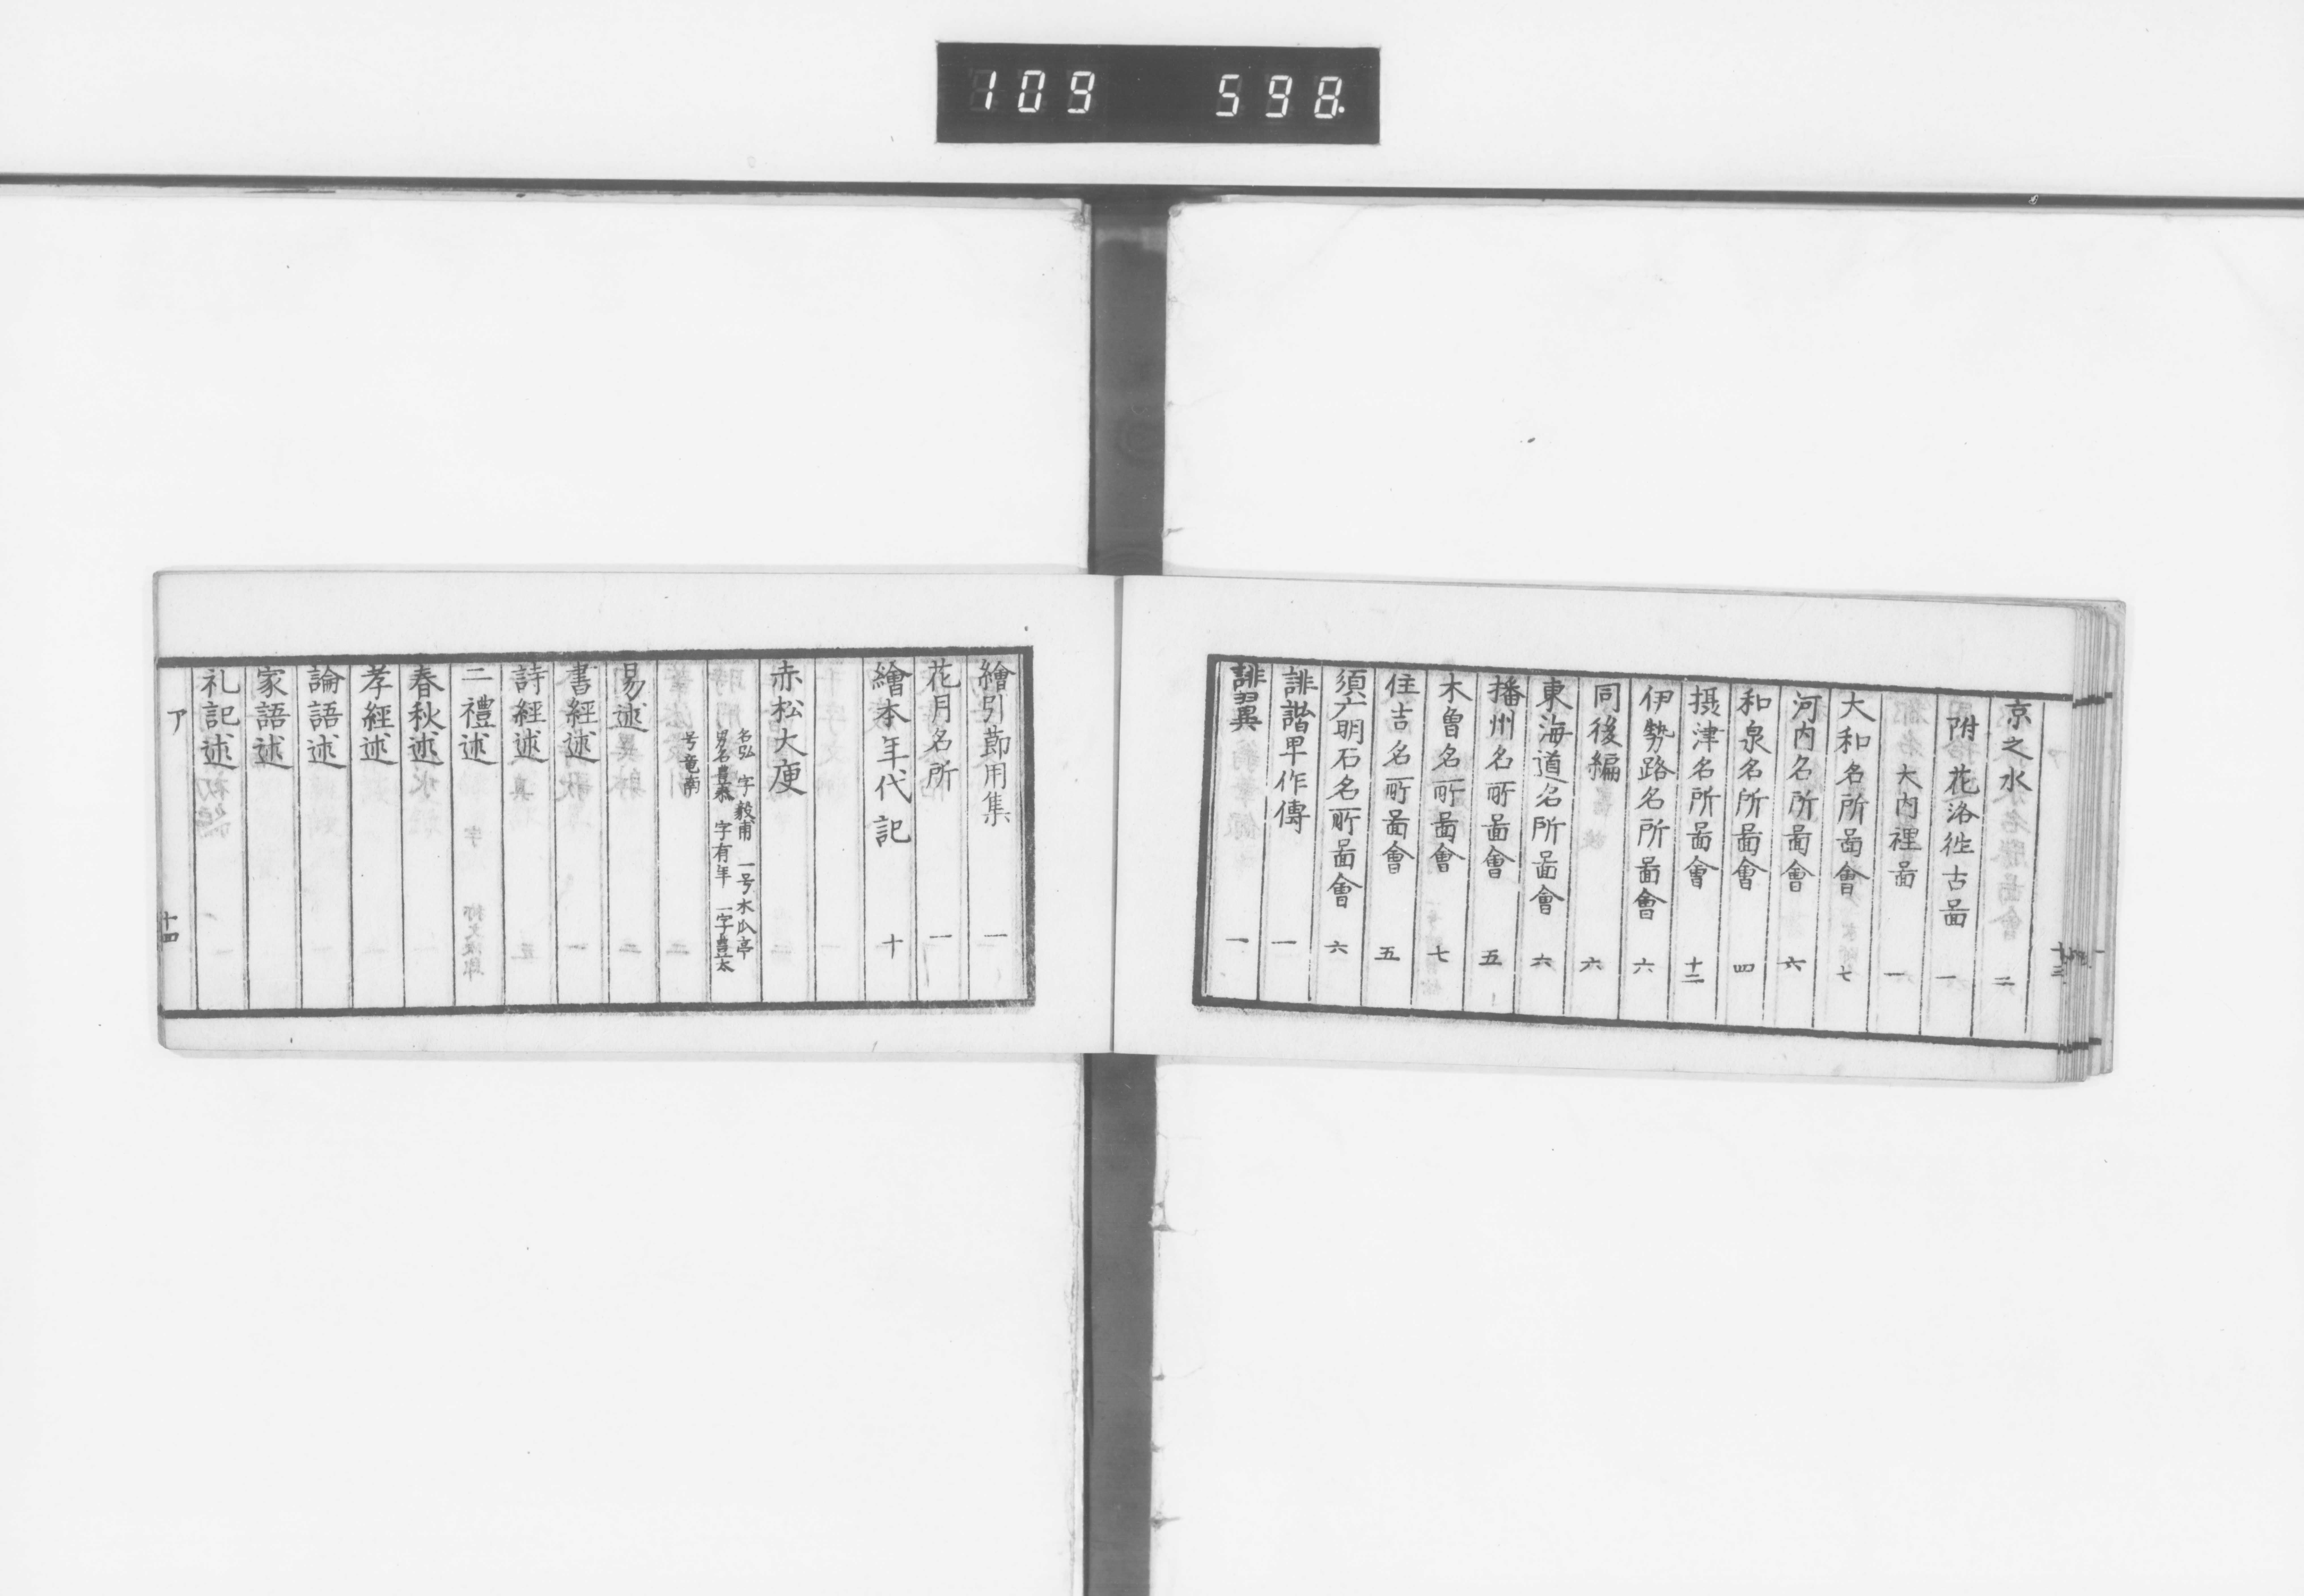 109 598.
京之水 二
附 花洛徃古啚 一
大内裡啚 一
大和名所啚會 七
河内名所啚會 六
和泉名所啚會 四
摂津名所啚會 十二
伊勢路名所啚會 六
同後編 六
東海道名所啚會 六
播州名所啚會 五
木曽名所啚會 七
住吉名所啚會 五
須广明石名所啚會 六
誹諧早作傳 一
誹翼 一
十三
繪引節用集 一
花月名所 一
繪本年代記 十
赤松大庾
名弘 字毅甫 一号木瓜亭
字有年 一字豊太
号竜南
易述
書經述
詩經述
二禮述
春秋述
孝經述
論語述
家語述
礼記述
ア
十四